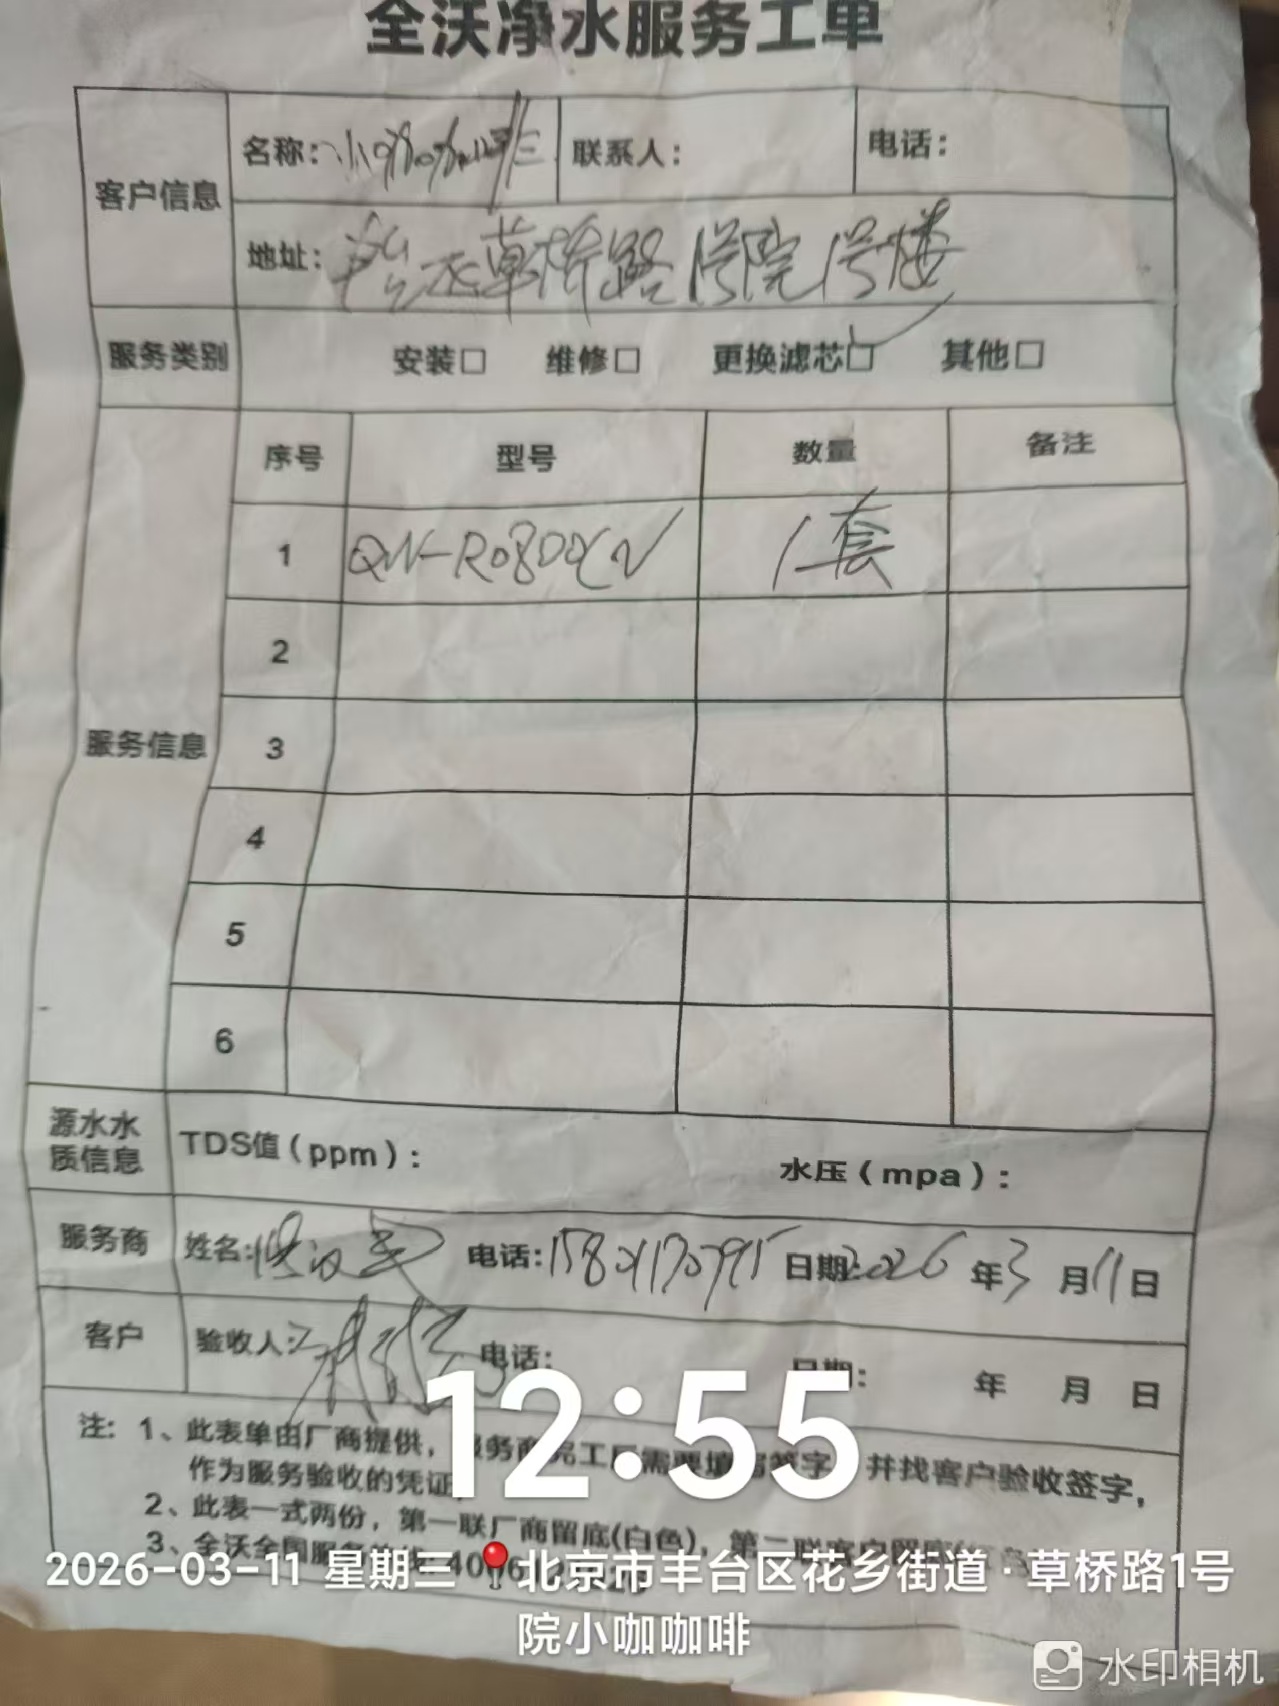 全沃净水服务工单
客户信息 名称：小咖咖啡 联系人： 电话：
地址：丰台区草桥路1号院1号楼
服务类别 安装□ 维修□ 更换滤芯□ 其他□
服务信息 序号 型号 数量 备注
1 1套
2
3
4
5
6
源水水质信息 TDS值（ppm）： 水压（mpa）：
服务商 姓名: 电话: 日期:2026年3月11日
客户 验收人: 电话: 日期: 年 月 日
注：1、此表单由厂商提供，服务商完工后需要填写签字，并找客户验收签字，
作为服务验收的凭证
2、此表一式两份，第一联厂商留底(白色)，第二联客户留底
3、全沃全国服务
12:55
2026-03-11 星期三 北京市丰台区花乡街道·草桥路1号
院小咖咖啡
水印相机